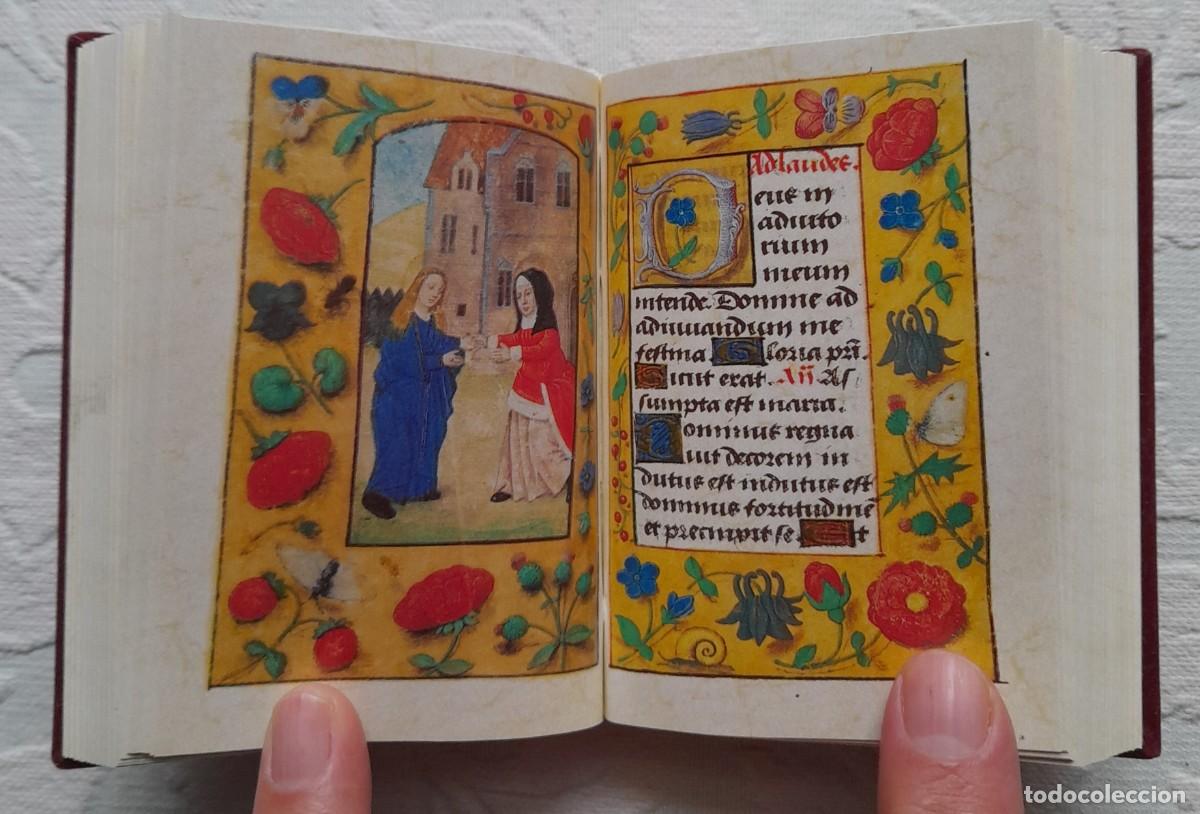 Ad laudes.
Deus in
adiuto
rium
meum
intende. Domine ad
adiuuandum me
festina. Gloria pri.
Sicut erat. Añ. As
sumpta est maria.
Dominus regna
uit decorem in
dutus est indutus est
dominus fortitudinē
et precinxit se. Et
todocoleccion